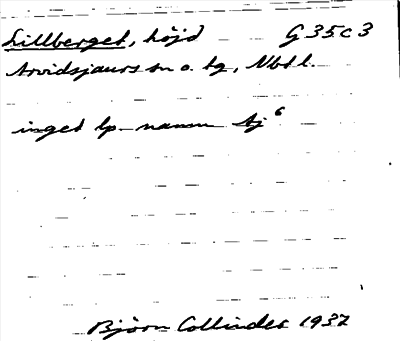 Lillberget, höjd G 35 c 3
Arvidsjaurs sn o. tg, Nbtl.
inget lp namn Aj 6
Björn Collinder 1937